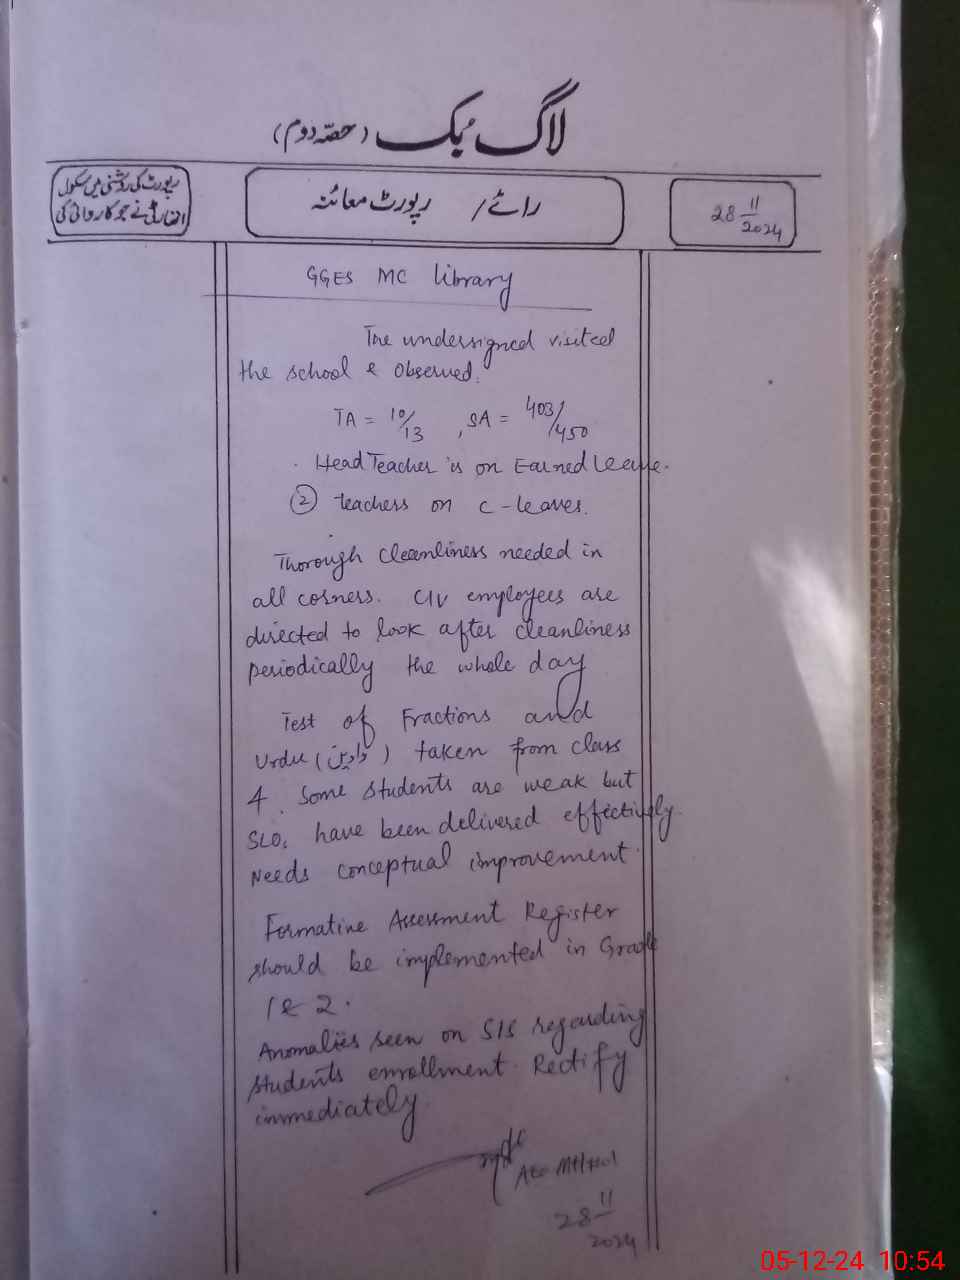 لاگ بک (حصّہ دوم)
رپورٹ کی روشنی میں سکول
اتھارٹی نے جو کاروائی کی
رائے / رپورٹ معائنہ
28 11/2024
GGES MC library
The undersigned visited
the school & Observed.
TA = 10/13 , SA = 403/450
. Head Teacher is on Earned Leave.
② teachers on c-leaves.
Thorough cleanliness needed in
all corners. CIV employees are
directed to look after cleanliness
periodically the whole day
Test of Fractions and
Urdu ( ) taken from class
4. Some students are weak but
SLOs have been delivered effectively.
Needs conceptual improvement.
Formative Assessment Register
should be implemented in Grade
1 & 2.
Anomalies seen on SIS regarding
students enrollment. Rectify
immediately.
28 11/2024
05-12-24 10:54